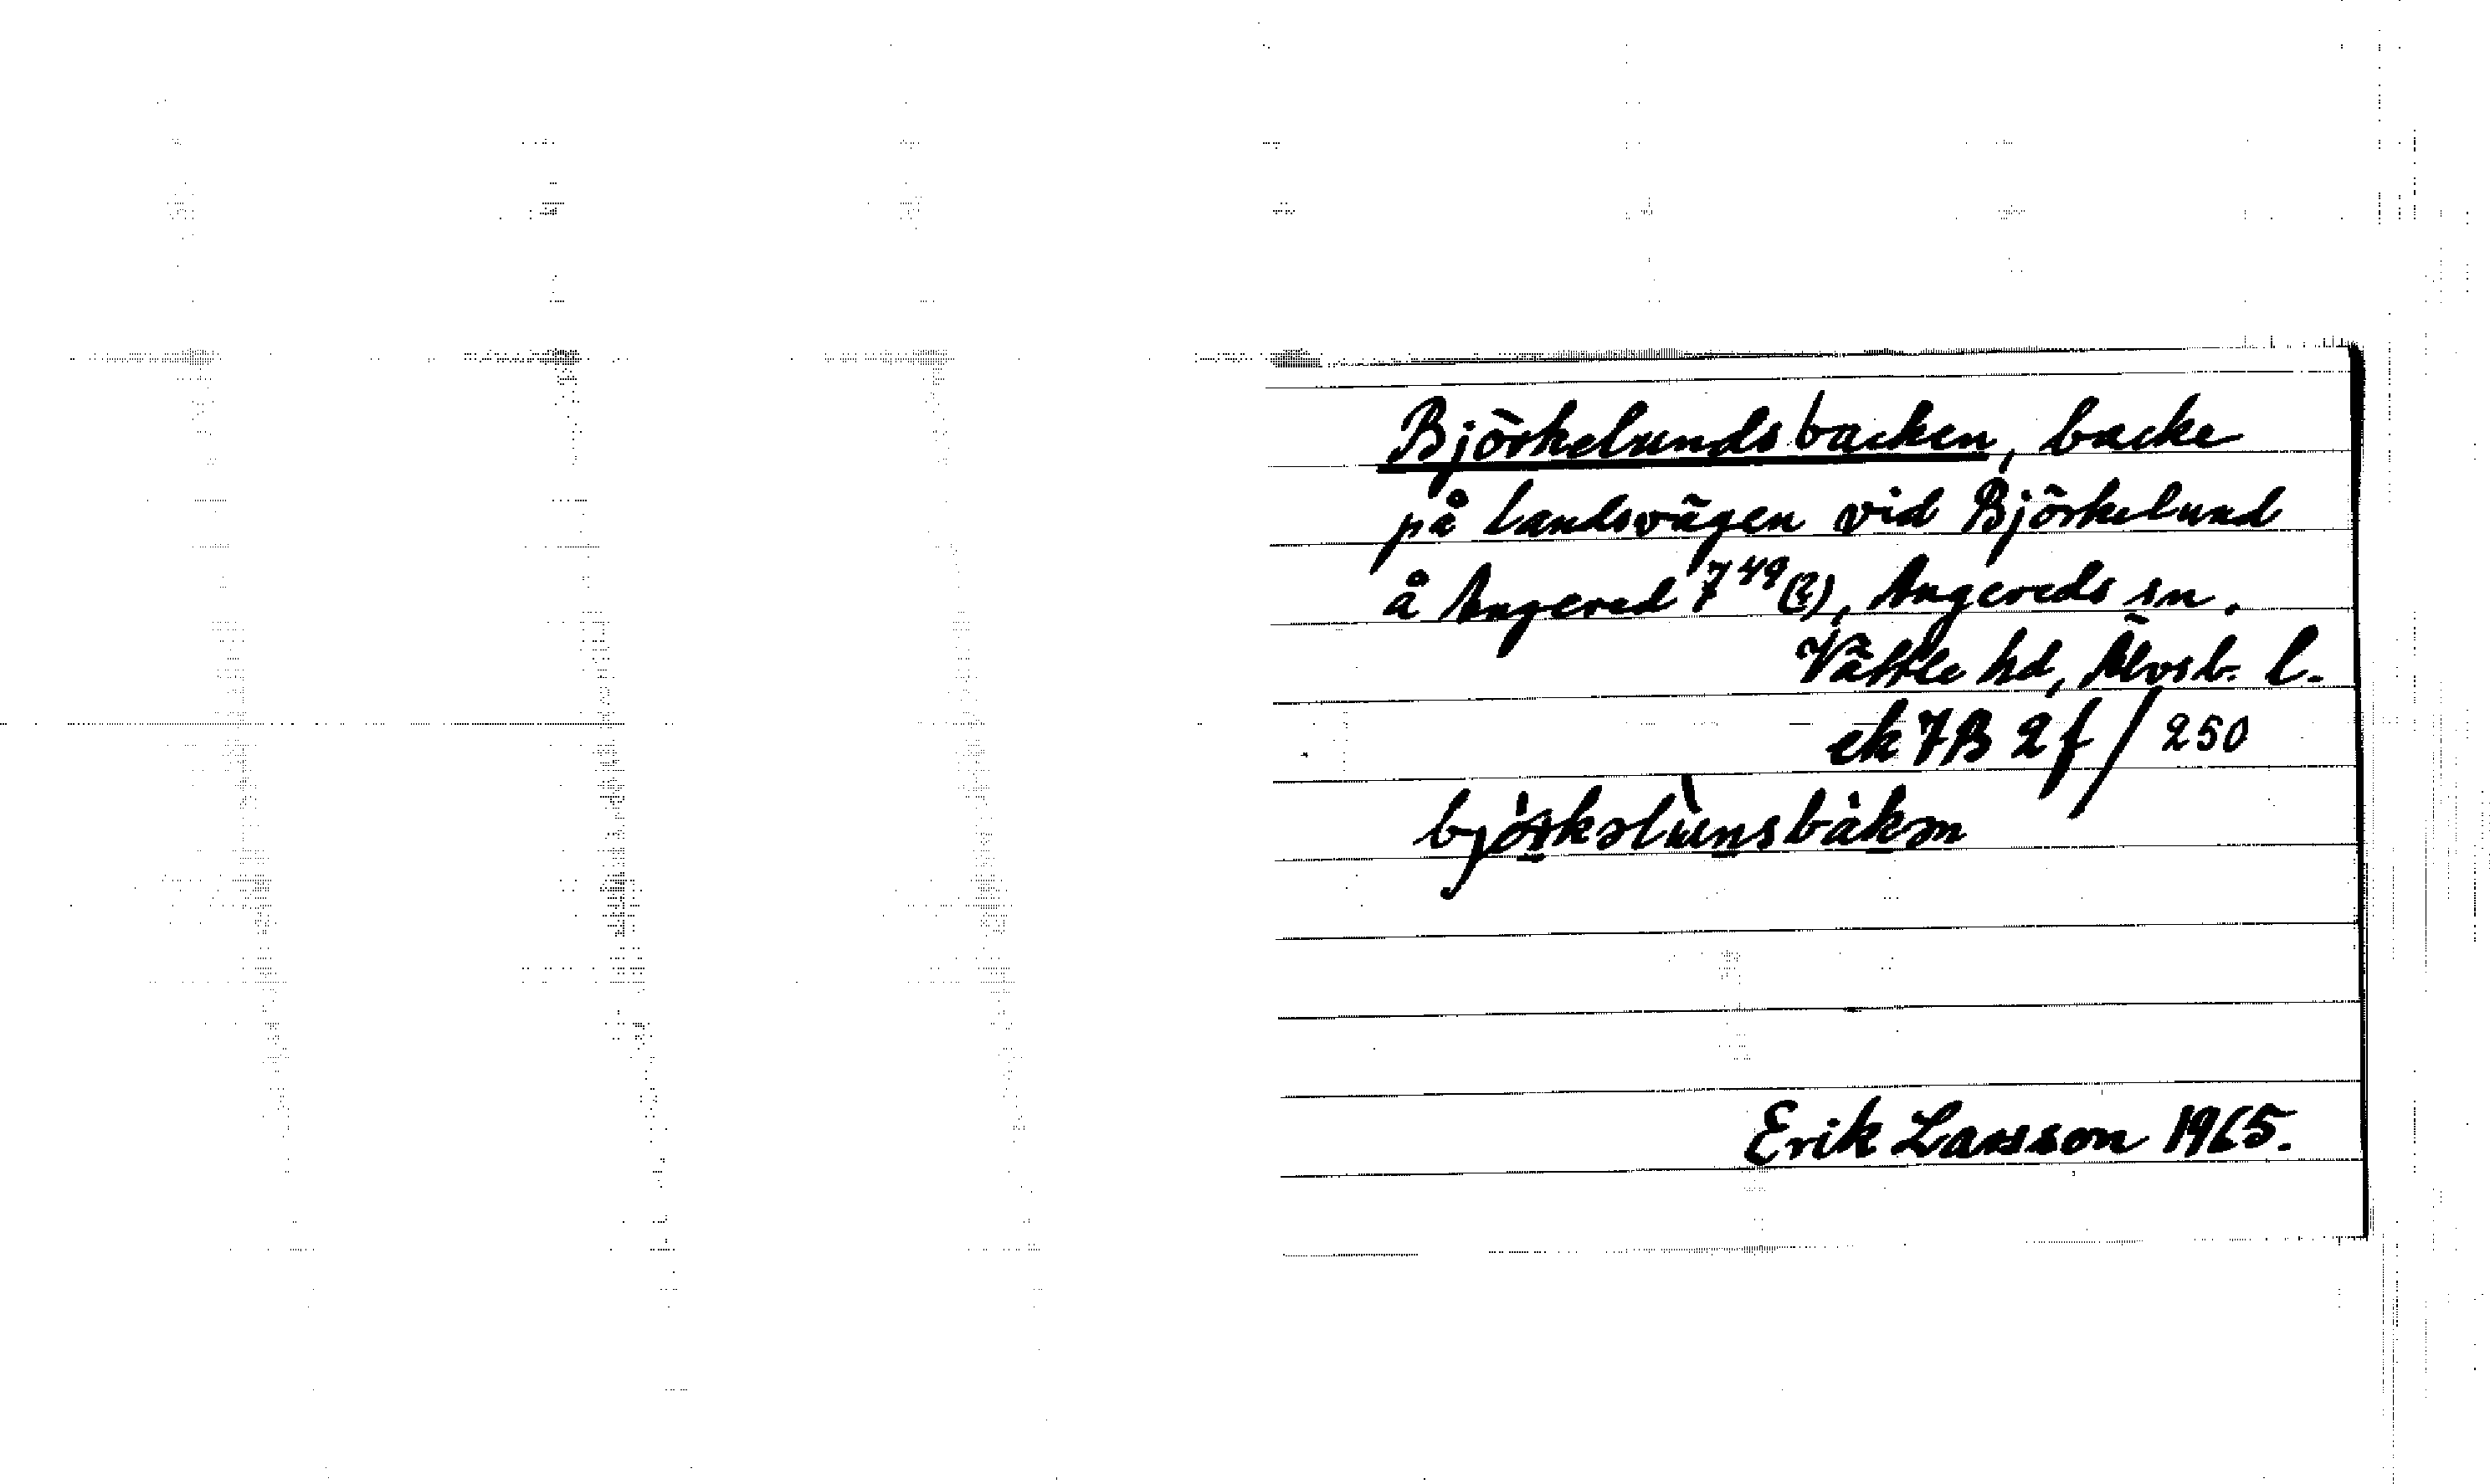 Björkelundsbacken, backe
på landsvägen vid Björkelund
å Angered 7⁴⁹(?), Angereds sn.
Vättle hd, Älvsb. l.
ek 7B 2f / 250
bjö̀rkəlùnsbàkən
Erik Larsson 1965.